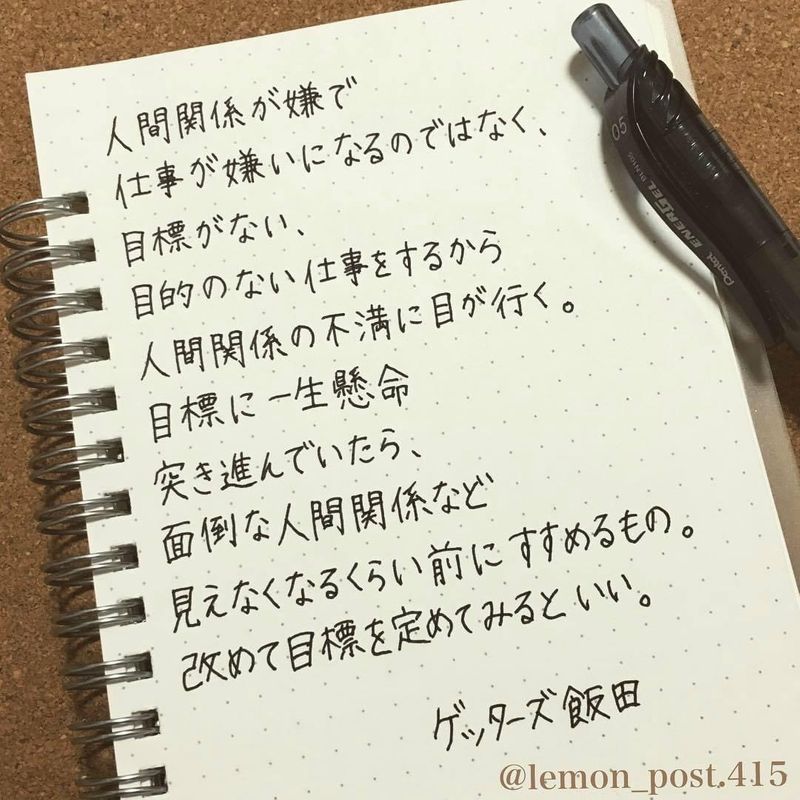 人間関係が嫌で
仕事が嫌いになるのではなく、
目標がない、
目的のない仕事をするから
人間関係の不満に目が行く。
目標に一生懸命
突き進んでいたら、
面倒な人間関係など
見えなくなるくらい前にすすめるもの。
改めて目標を定めてみるといい。
ゲッターズ飯田
@lemon_post.415
05
Pentel ENERGEL